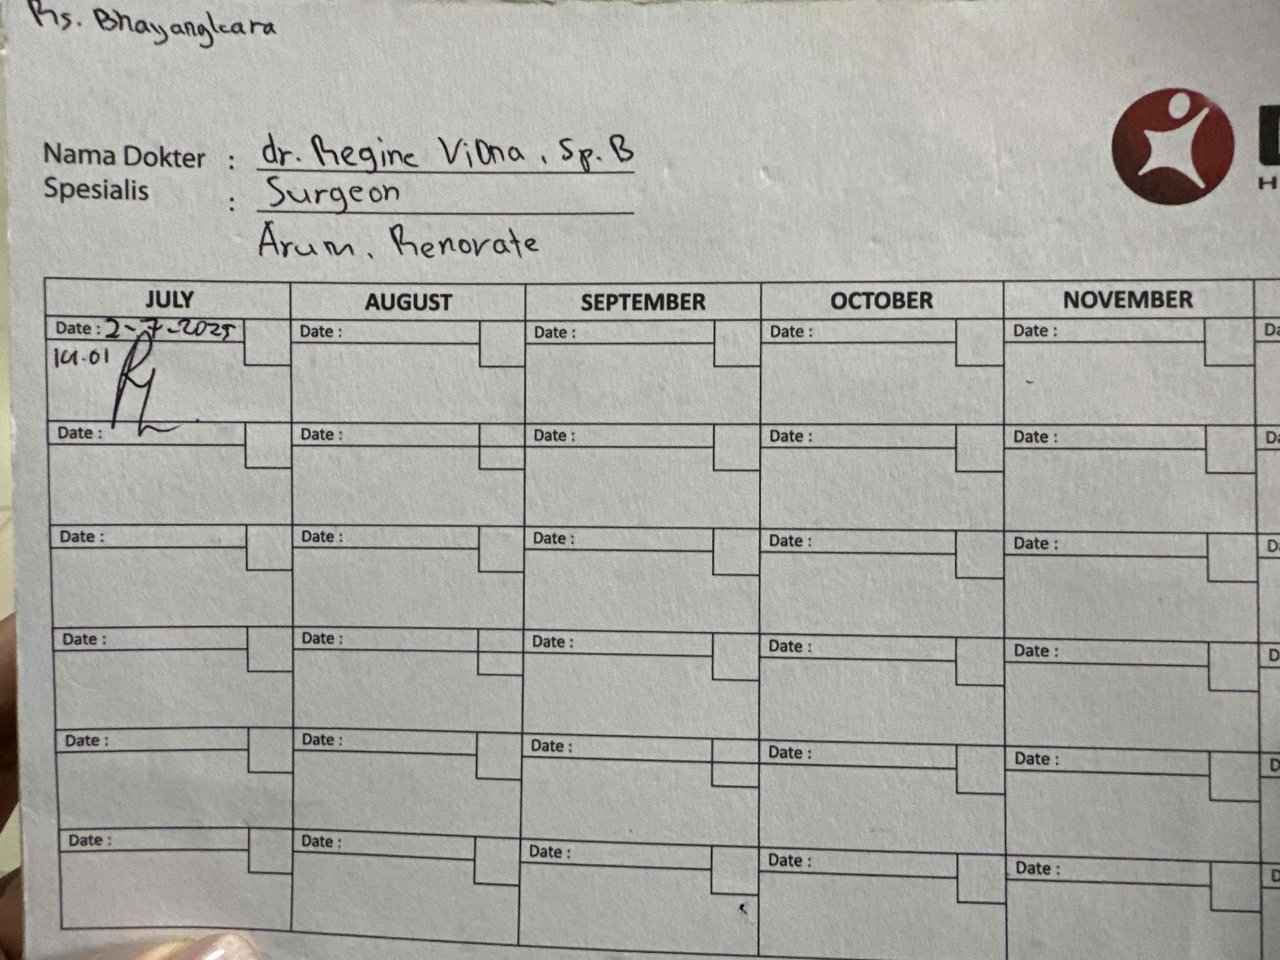 Rs. Bhayangkara
Nama Dokter : dr. Regine Viona, Sp.B
Spesialis : Surgeon
Arum, Renovate
JULY AUGUST SEPTEMBER OCTOBER NOVEMBER
Date : 2-7-2025 Date : Date : Date : Date :
14.01
Date : Date : Date : Date : Date :
Date : Date : Date : Date : Date :
Date : Date : Date : Date : Date :
Date : Date : Date : Date : Date :
Date : Date : Date : Date : Date :